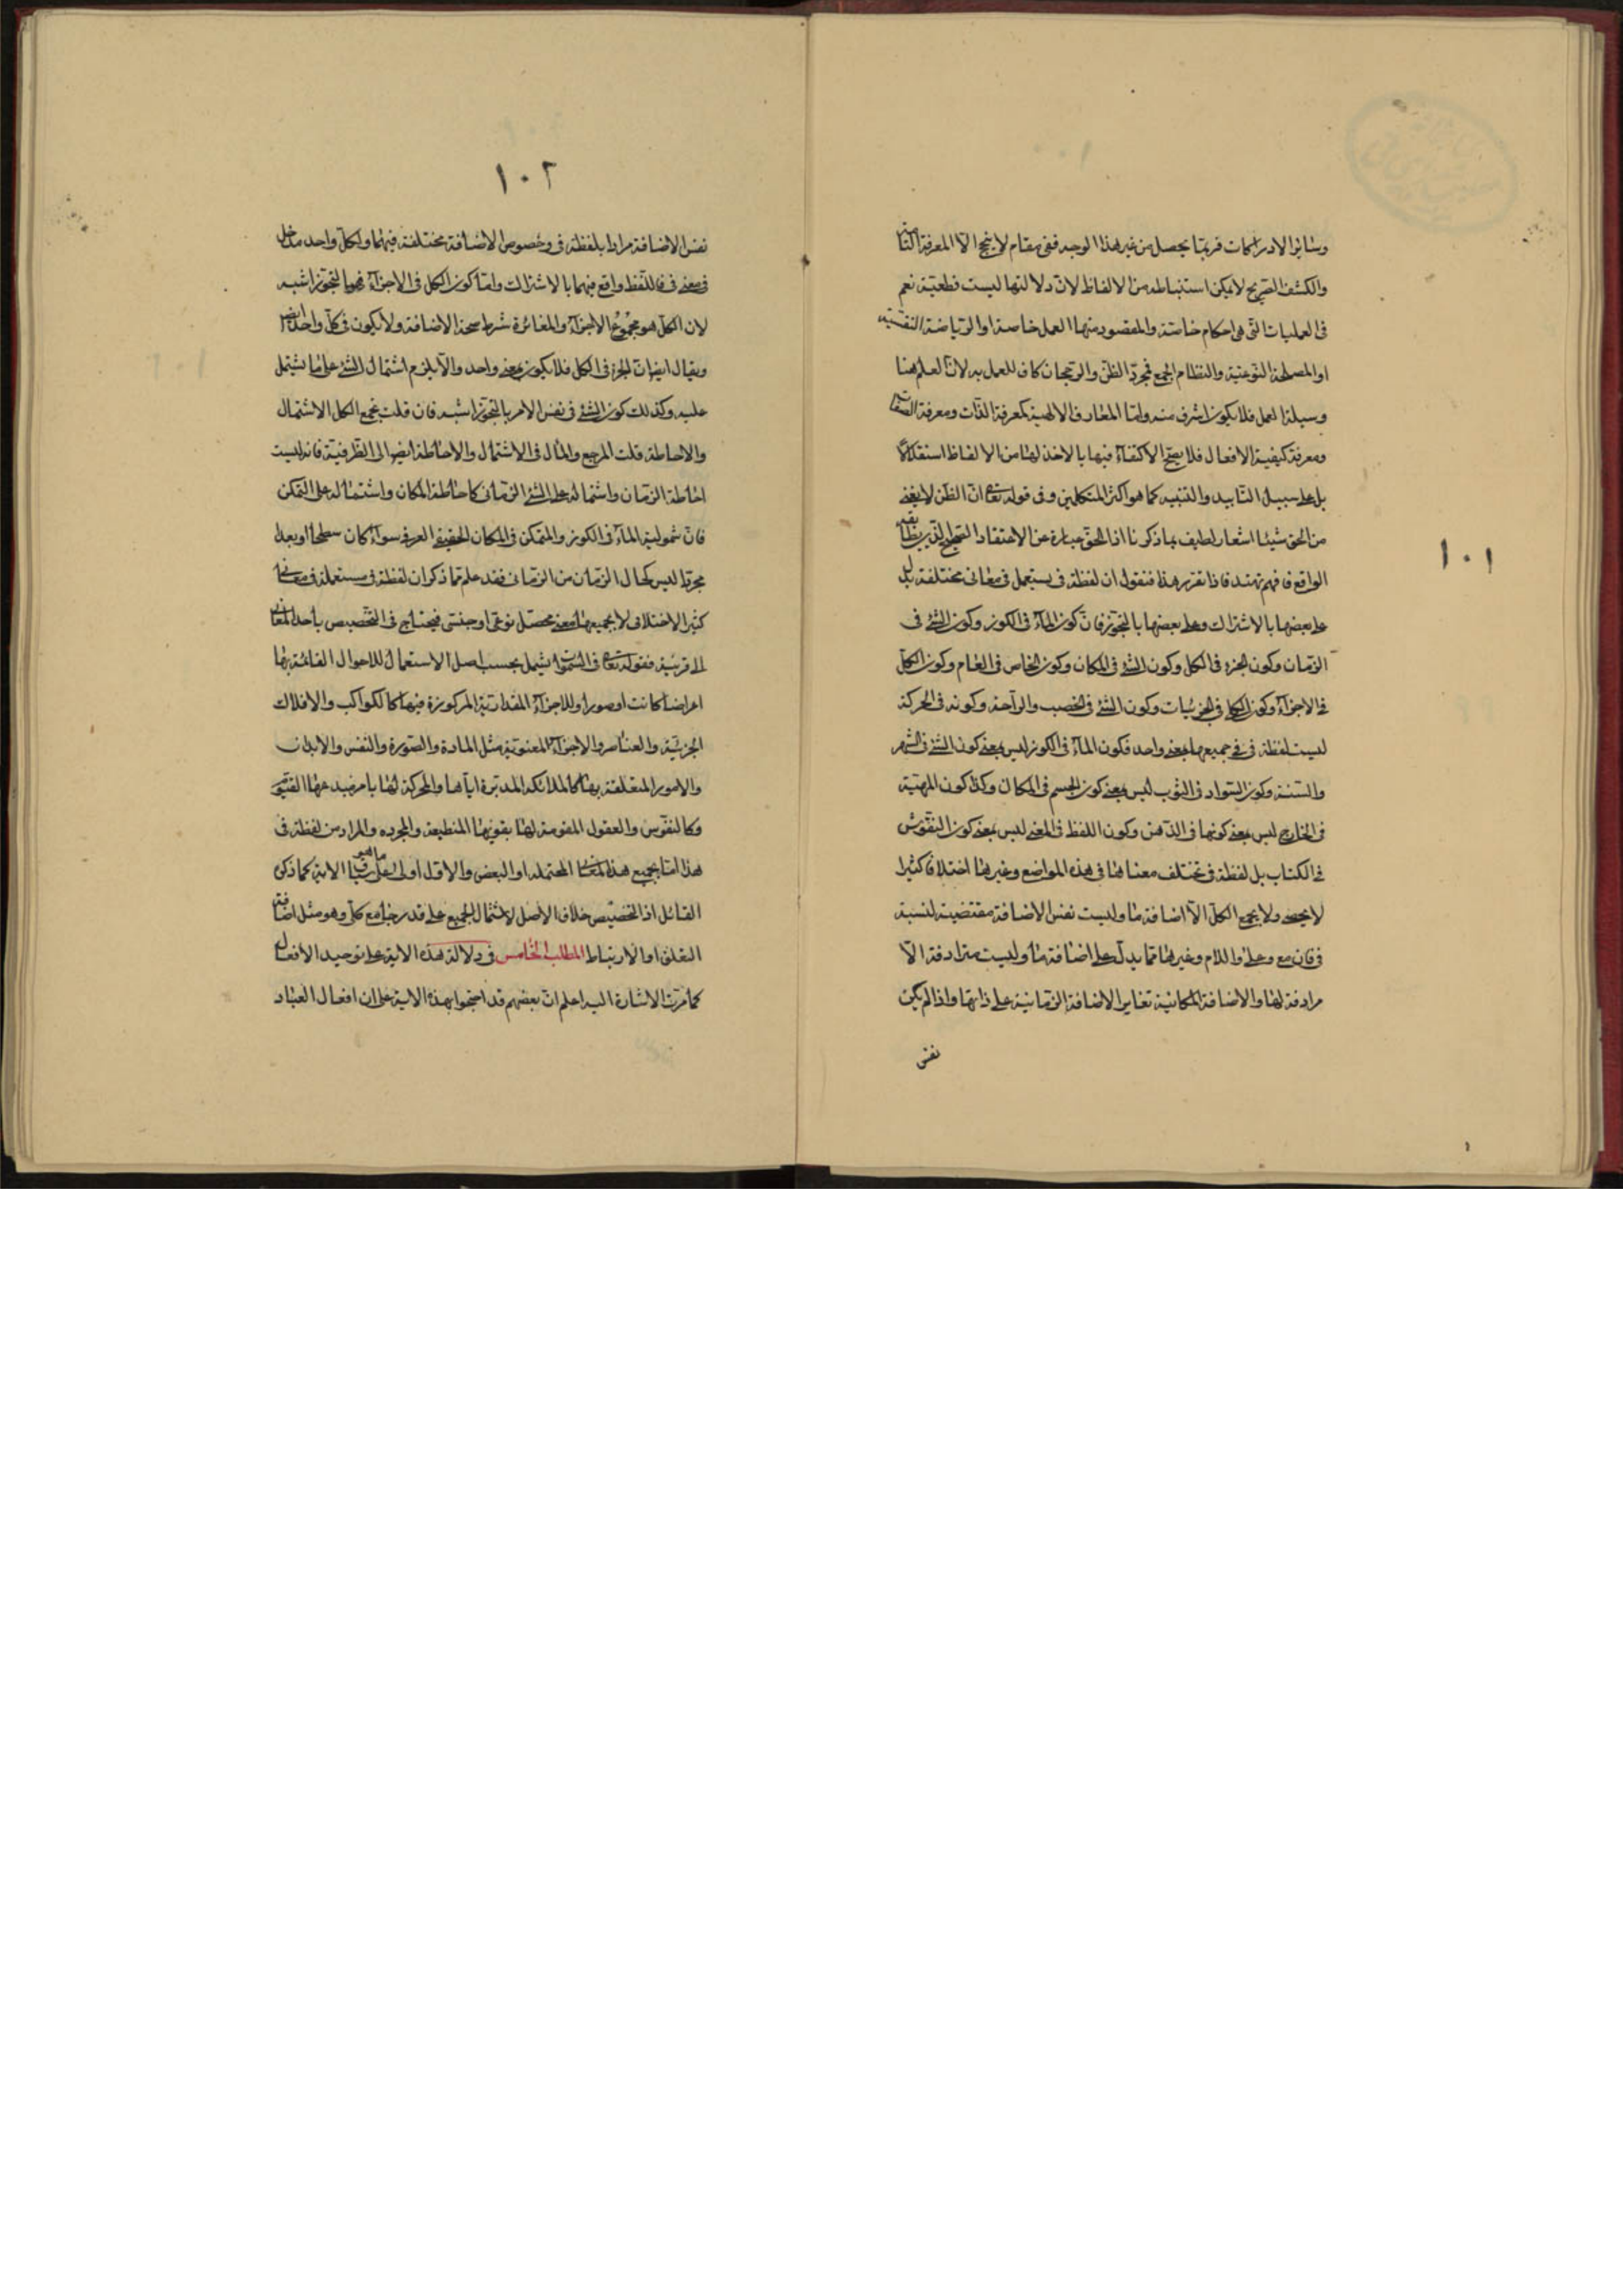 ١٠١
وسائر الادراكات فربما يحصل من غير هذا الوجه ففى مقام لا ينجح الا المعرفة التامة
والكشف الصريح لا يمكن استنباطه من الالفاظ لان دلالتها ليست قطعية نعم
فى العمليات التى هى احكام خاصة والمقصود منها العمل خاصة او الرياضة النفسية
او المصلحة النوعية والنظام الجمع فمجرد الظن والرجحان كاف للعمل به لان العلم هنا
وسيلة العمل فلا يكون اشرف منه واما المعارف الالهية كمعرفة الذات ومعرفة الصفات
ومعرفة كيفية الافعال فلا يصح الاكتفاء فيها بالاخذ لها من الالفاظ استقلالا
بل على سبيل التاييد والتنبيه كما هو اكثر المتكلمين وفى قوله تعالى ان الظن لا يغنى
من الحق شيئا اشعار لطيف بما ذكرنا اذ الحق عبارة عن الاعتقاد الصحيح الذى يطابقه
الواقع فافهم تهتد فاذا تقرر هذا فنقول ان لفظة فى يستعمل فى معانى مختلفة بل
على بعضها بالاشتراك وعلى بعضها بالتجوز فان كون الماء فى الكوز وكون الشئ فى
الزمان وكون الجزء فى الكل وكون الشئ فى المكان وكون الخاص فى العام وكون الكل
فى الاجزاء وكون الكلى فى الجزئيات وكون الشئ فى الخصب والراحة وكونه فى الحركة
ليست لفظة فى فى جميعها بمعنى واحد فكون الماء فى الكوز ليس بمعنى كون الشئ فى الشهر
والسنة وكون السواد فى الثوب ليس بمعنى كون الجسم فى المكان وكذا كون المهية
فى الخارج ليس بمعنى كونها فى الذهن وكون اللفظ فى المعنى ليس بمعنى كون النقوش
فى الكتاب بل لفظة فى تختلف معناها فى هذه المواضع وغيرها اختلافا كثيرا
لا يحصى ولا يجمع الكل الا اضافة ما وليست نفس الاضافة مقتضية لنسبة
فى فان مع وعلى واللام وغيرها مما يدل على اضافة ما وليست مترادفة الا
مرادفة لها والاضافة المكانية تغاير الاضافة الزمانية على ذاتها واذا لم يكن
نفس
١٠٢
نفس الاضافة مرادا بلفظة فى وخصوص الاضافة مختلفة فيهما ولكل واحد مدخل
فى معنى فى فاللفظ واقع فيهما بالاشتراك واما كون الكل فى الاجزاء فهو بالتجوز اشبه
لان الكل هو مجموع الاجزاء والمغائرة شرط صحة الاضافة ولا يكون فى كل واحد ايضا
ويقال ايضا ان الجزء فى الكل فلا يكون بمعنى واحد والا يلزم اشتمال الشئ على ما يشتمل
عليه وكذلك كون الشئ فى نفس الامر بالتجوز اشبه فان قلت بجمع الكل الاشتمال
والاحاطة قلت المرجع والمآل فى الاشتمال والاحاطة ايضا الى الظرفية فانه ليست
احاطة الزمان واشتماله على الشئ الزمانى كاحاطة المكان واشتماله على المتمكن
فان شمولية الماء فى الكوز والمتمكن فى المكان الحقيقى العرفى سواء كان سطحا او بعدا
مجردا ليس كحال الزمان من الزمانى فقد علم مما ذكر ان لفظة فى مستعملة فى معانى
كثير الاختلاف لا يجمعها معنى محصل نوعى او جنسى فيحتاج فى التخصيص باحد المعانى
الى قرينة فقوله تعالى فى السموات يشمل بحسب اصل الاستعمال للاحوال القائمة بها
اعراضا كانت او صورا وللاجزاء المقدارية المركوزة فيها كالكواكب والافلاك
الجزئية والعناصر والاجزاء المعنوية مثل المادة والصورة والنفس والابدان
والامور المتعلقة بها كالملائكة المدبرة اياها والمحركة لها بامر مبدعها القيوم
وكالنفوس والعقول المقومة لها بقويها المنطبعة والمجرده والمراد من لفظة فى
هذا اما جميع هذا المعانى المحتملة او البعض والاول اولى الاية كما ذكره
القائل اذ التخصيص خلاف الاصل لاشتمال الجميع على قدر مع كل وهو مثل اضافة
التعلق او الارتباط المطلب الخامس فى دلالة هذه الاية على توحيد الافعال
كما مرت الاشارة اليه اعلم ان بعضهم قد احتجوا بهذه الاية على ان افعال العباد